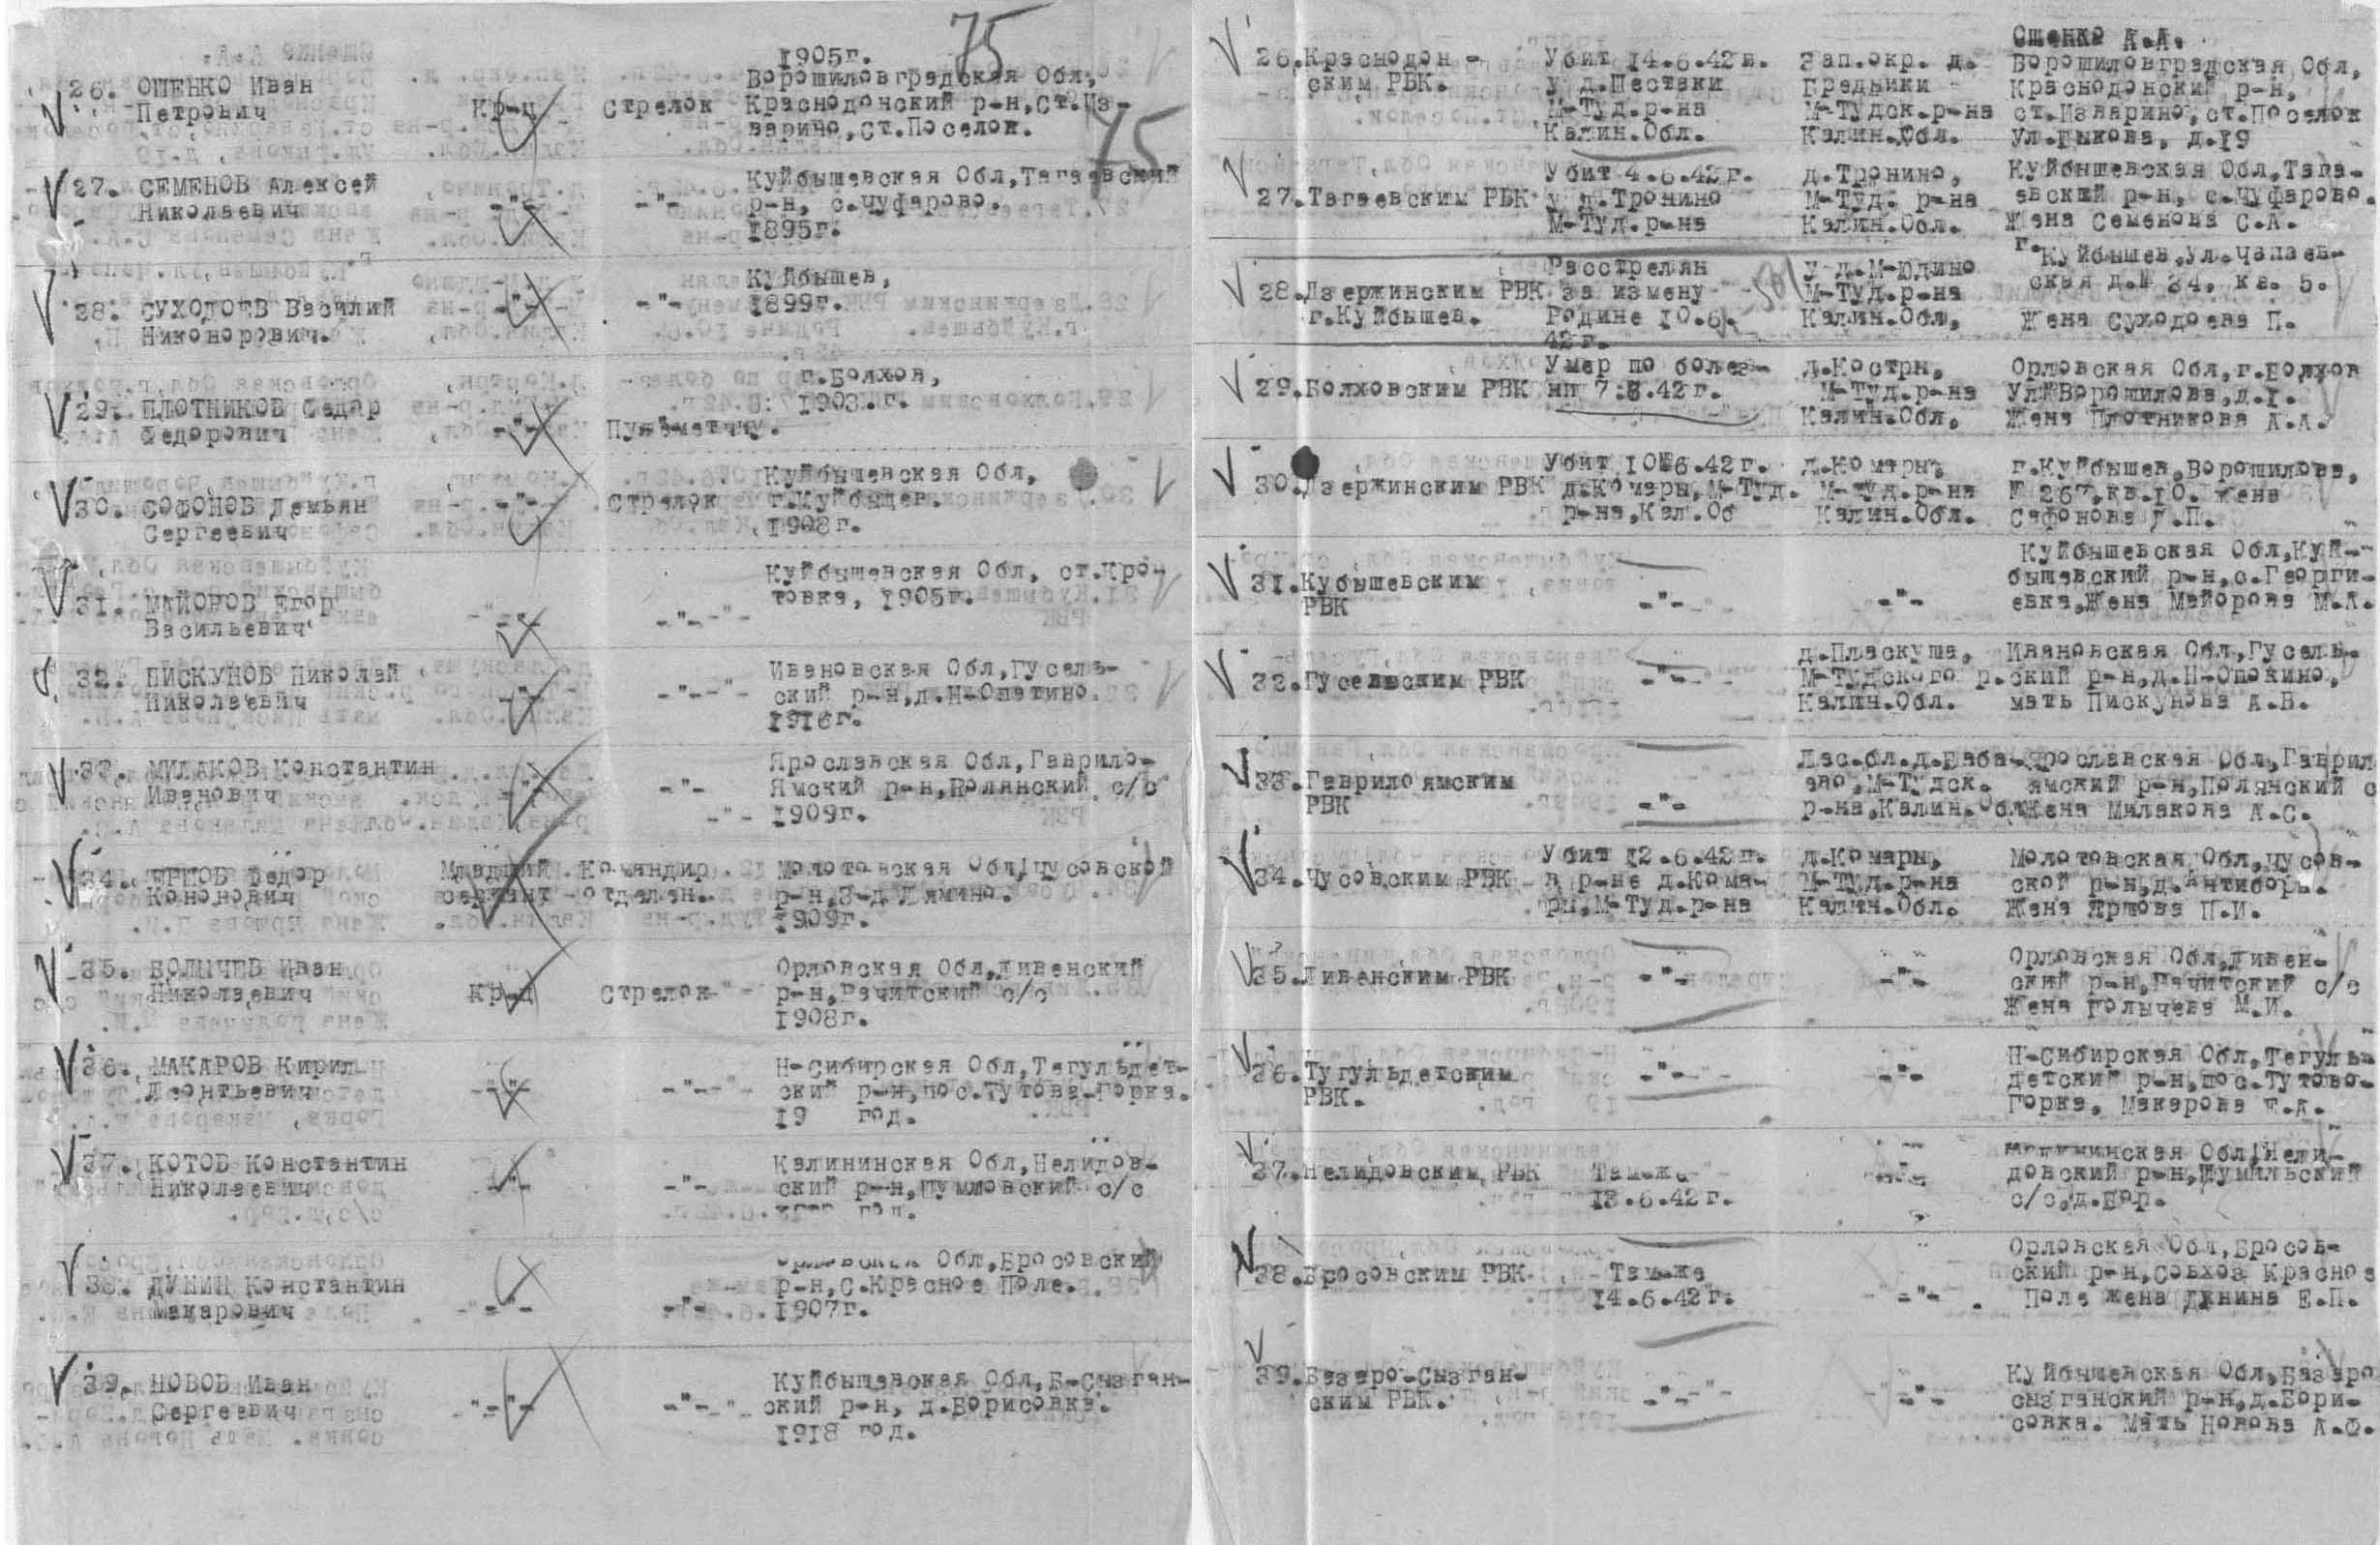 75
1905г.
26. ОШЕНКО Иван
Петрович
Кр-ц
Стрелок
Ворошиловградская Обл,
Краснодонский р-н, Ст.Из-
варино, Ст.Поселок.
75
27. СЕМЕНОВ Алексей
Николаевич
-"-
-"-
Куйбышевская Обл, Тагаевский
р-н, с.Чуфарово.
1895г.
28. СУХОДОЕВ Василий
Никонорович.
-"-
-"-
Куйбышев,
1899г.
29. ПЛОТНИКОВ Федар
Федорович
-"-
Пулеметчиу.
г.Болхов,
1903.г.
30. СОФОНОВ Демьян
Сергеевич
-"-
Стрелок
Куйбышевская Обл,
г.Куйбышев.
1908г.
31. МАЙОРОВ Егор
Васильевич
-"-
-"-
Куйбышевская Обл, ст.Кро-
товка, 1905г.
32. ПИСКУНОВ Николай
Николаевич
-"-
-"-
Ивановская Обл, Гусель-
ский р-н, д.Н-Опатино.
1916г.
33. МИЛАКОВ Константин
Иванович
-"-
-"-
Ярославская Обл, Гаврило-
Ямский р-н, Полянский с/с
1909г.
34. Федор
Кононович
Младший сержант
Командир отделен.
Молотовская Обл, Чусовской
р-н, З-д Лямино.
1909г.
35. ГОЛЫЧЕВ Иван
Николаевич
Кр-ц
Стрелок
Орловская Обл, Ливенский
р-н, Речитский с/с
1908г.
36. МАКАРОВ Кирил
Леонтьевич
-"-
-"-
Н-Сибирская Обл, Тегульдет-
ский р-н, пос.Тутова-Горка.
19 год.
37. КОТОВ Константин
Николаевич
-"-
-"-
Калининская Обл, Нелидов-
ский р-н, с/с
год.
38. ДУНИН Константин
Макарович
-"-
-"-
Обл, Бросовский
р-н, С.Красное Поле.
1907г.
39. НОВОВ Иван
Сергеевич
-"-
-"-
Куйбышевская Обл, Б-Сызган-
ский р-н, д.Борисовка.
1918 год.
26. Краснодон-
ским РВК.
Убит 14.6.42г.
у д.Шестаки
М-Туд.р-на
Калин.Обл.
Зап.окр. д.
Градники
М-Тудск.р-на
Калин.Обл.
Ошенко А.А.
Ворошиловградская Обл,
Краснодонский р-н,
ст.Изварино, ст.Поселок
ул.Рыкова, д.19
27. Тагаевским РВК
Убит 4.6.42г.
у д.Тронино
М-Туд.р-на
д.Тронино,
М-Туд. р-на
Калин.Обл.
Куйбышевская Обл, Тага-
евский р-н, с.Чуфарово.
Жена Семенова С.А.
28. Дзержинским РВК
г.Куйбышев.
Расстрелян
за измену
Родине 10.6.
42г.
у д.М-Юдино
М-Туд.р-на
Калин.Обл,
г.Куйбышев, ул.Чапаев-
ская д.№ 34, кв. 5.
Жена Суходоева П.
29. Болховским РВК
Умер по болез-
ни 7.6.42г.
д.Костры,
М-Туд.р-на
Калин.Обл,
Орловская Обл, г.Болхов
Ул.Ворошилова, д.1.
Жена Плотникова А.А.
30. Дзержинским РВК
Убит 10.6.42г.
д.Комары, М-Туд.
р-на, Кал.Об
д.Комары,
М-Туд.р-на
Калин.Обл.
г.Куйбышев, Ворошилова,
№ 267, кв.10. Жена
Сафонова П.
31. Кубышевским
РВК
-"-
-"-
Куйбышевская Обл, Куй-
бышевский р-н, с.Георги-
евка, Жена Майорова М.А.
32. Гусельским РВК
-"-
д.Пласкуша,
М-Тудского р.
Калин.Обл.
Ивановская Обл, Гусель-
ский р-н, д.Н-Опокино,
мать Пискунова А.В.
33. Гаврилоямским
РВК
-"-
д.Баба-
ево, М-Тудск.
р-на, Калин.Обл
Ярославская Обл, Гаврил
ямский р-н, Полянский с
Жена Милакова А.С.
34. Чусовским РВК
Убит 12.6.42г.
в р-не д.Кома-
ры, М-Туд.р-на
д.Комары,
М-Туд.р-на
Калин.Обл.
Молотовская Обл, Чусов-
ской р-н, д.Антиборь.
Жена П.И.
35. Ливенским РВК
-"-
-"-
Орловская Обл, Ливен-
ский р-н, Речитский с/с
Жена Голычева М.И.
36. Тугульдетским
РВК.
-"-
-"-
Н-Сибирская Обл, Тегуль-
детский р-н, пос.Тутово-
Горка. Макарова Е.А.
37. Нелидовским РВК
Там-же
13.6.42г.
-"-
Обл, Нели-
довский р-н, Шумильский
с/с, д.Бор.
38. Бросовским РВК
Там-же
14.6.42г.
-"-
Орловская Обл, Бросов-
ский р-н, Совхоз Красное
Поле Жена Дунина Е.П.
39. Базаро-Сызган-
ским РВК.
-"-
-"-
Куйбышевская Обл, Базаро
сызганский р-н, д.Бори-
совка. Мать Новова А.Ф.